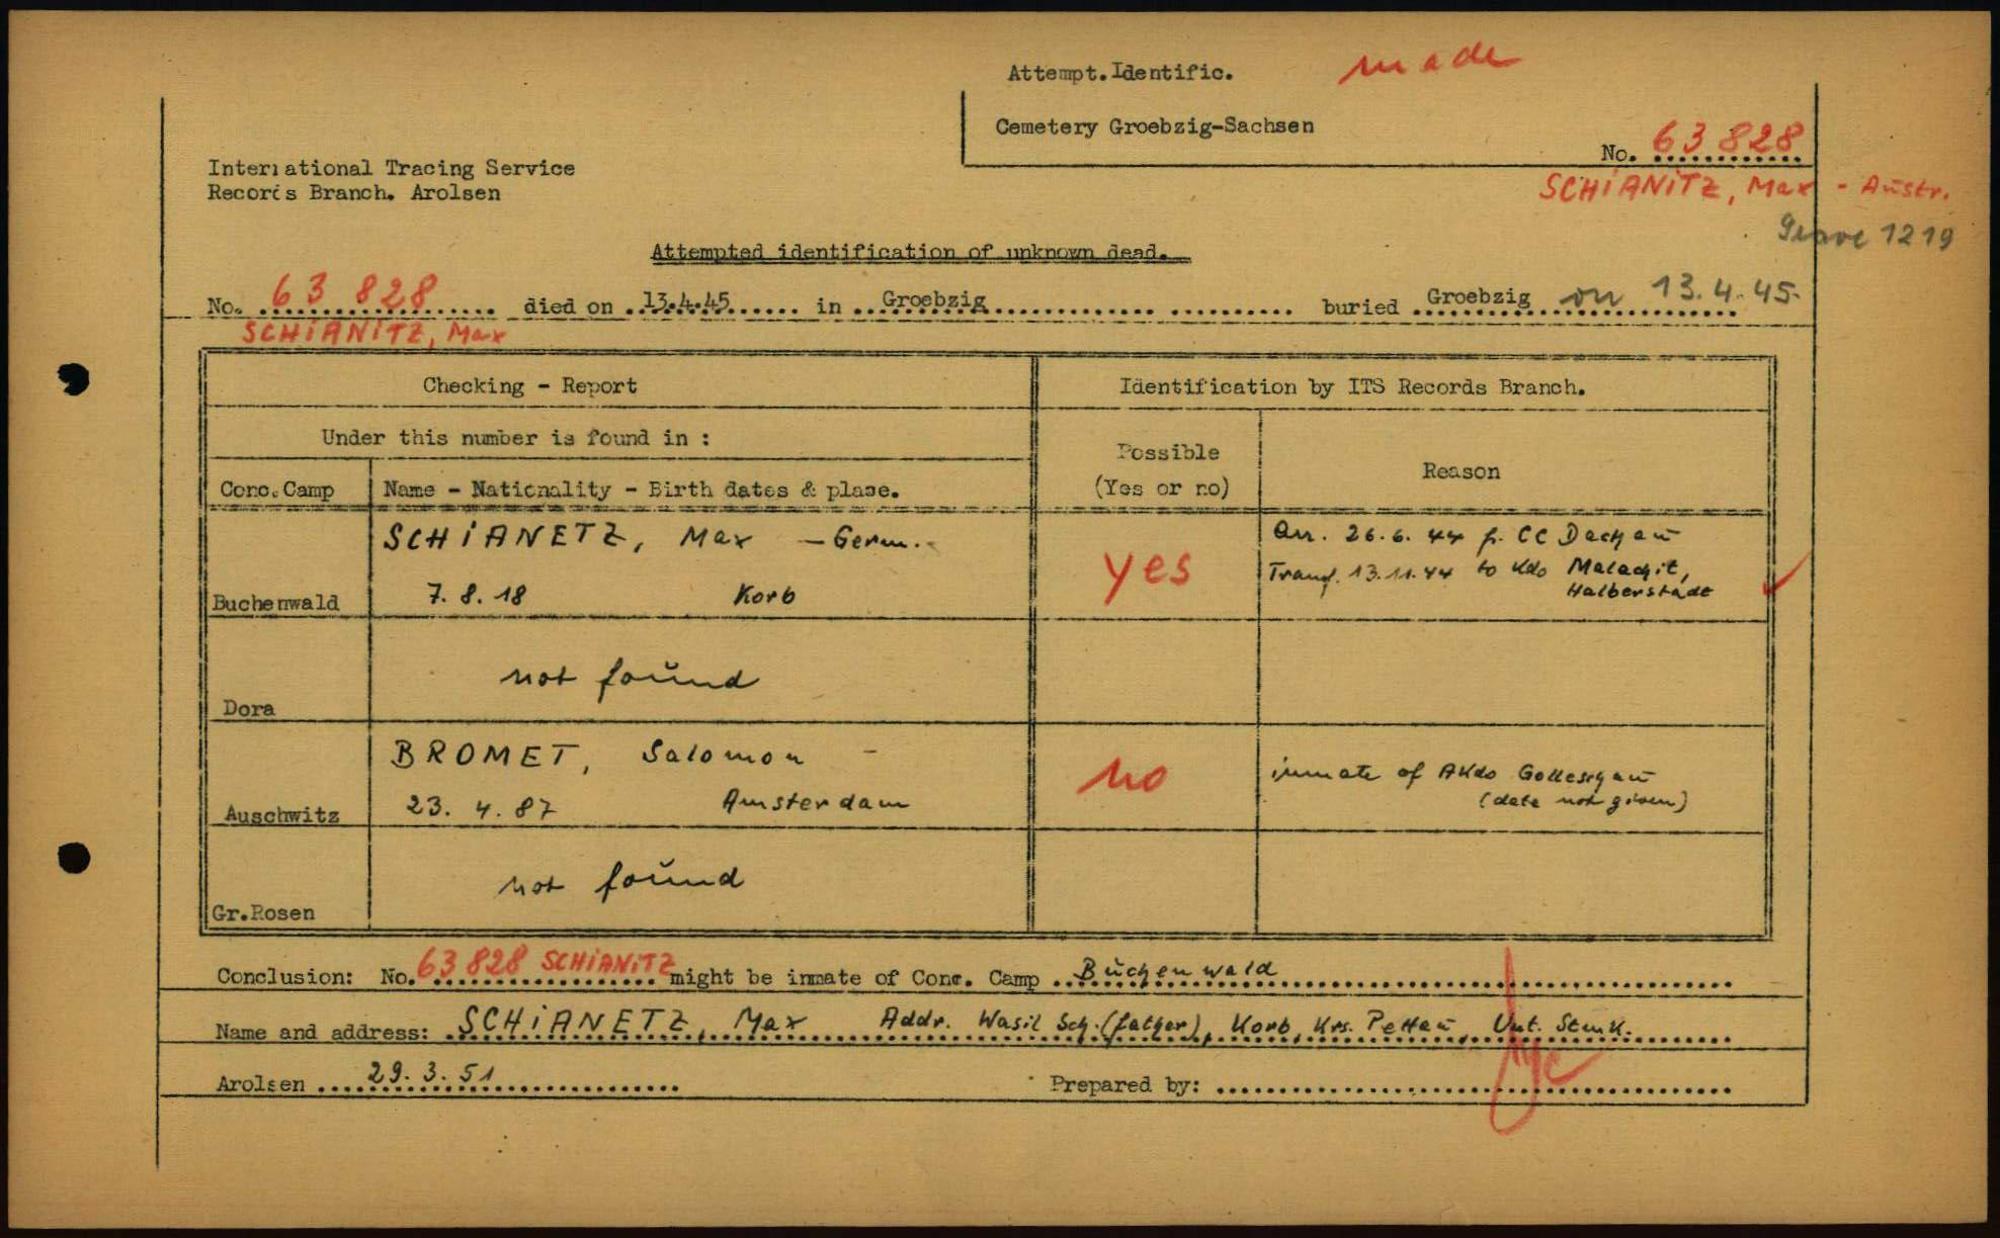 Attempt.Identific. made
Cemetery Groebzig-Sachsen
No. 63 828
International Tracing Service
Records Branch. Arolsen
SCHIANITZ, Max - Austr.
Grave 1219
Attempted identification of unknown dead.
No. 63 828 died on 13.4.45 in Groebzig buried Groebzig on 13.4.45.
SCHIANITZ, Max
Checking - Report
Identification by ITS Records Branch.
Under this number is found in :
Possible
(Yes or no)
Reason
Conc.Camp
Name - Nationality - Birth dates & place.
SCHIANETZ, Max - Germ.-
Arr. 26.6.44 fr. CC Dachau
yes
Transf. 13.11.44 to Kdo Malachit,
Halberstadt
Buchenwald
7.8.18 Korb
not found
Dora
BROMET, Salomon -
no
inmate of AKdo Golleschau
(date not given)
Auschwitz
23. 4. 87 Amsterdam
not found
Gr.Rosen
Conclusion: No. 63 828 SCHIANITZ might be inmate of Conc. Camp Buchenwald
Name and address: SCHIANETZ, Max Addr. Wasil Sch. (father), Korb, Krs. Pettau, Unt. Stmk.
Arolsen 29.3.51
Prepared by: